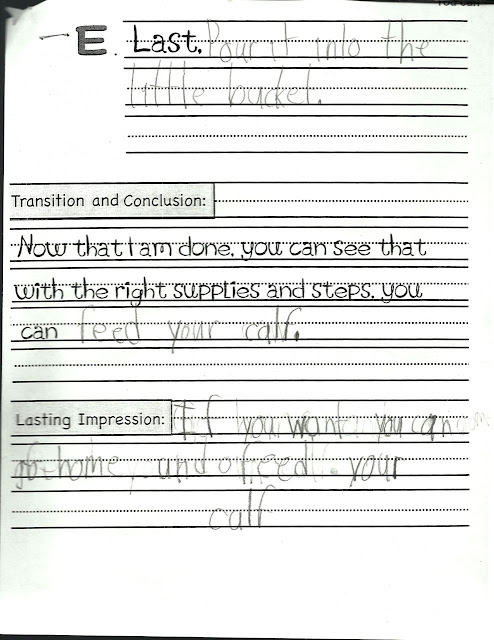 → E. Last, Pour it into the
little bucket.
Transition and Conclusion:
Now that I am done, you can see that
with the right supplies and steps, you
can feed your calf.
Lasting Impression: If you want you can
go home and feed your
calf